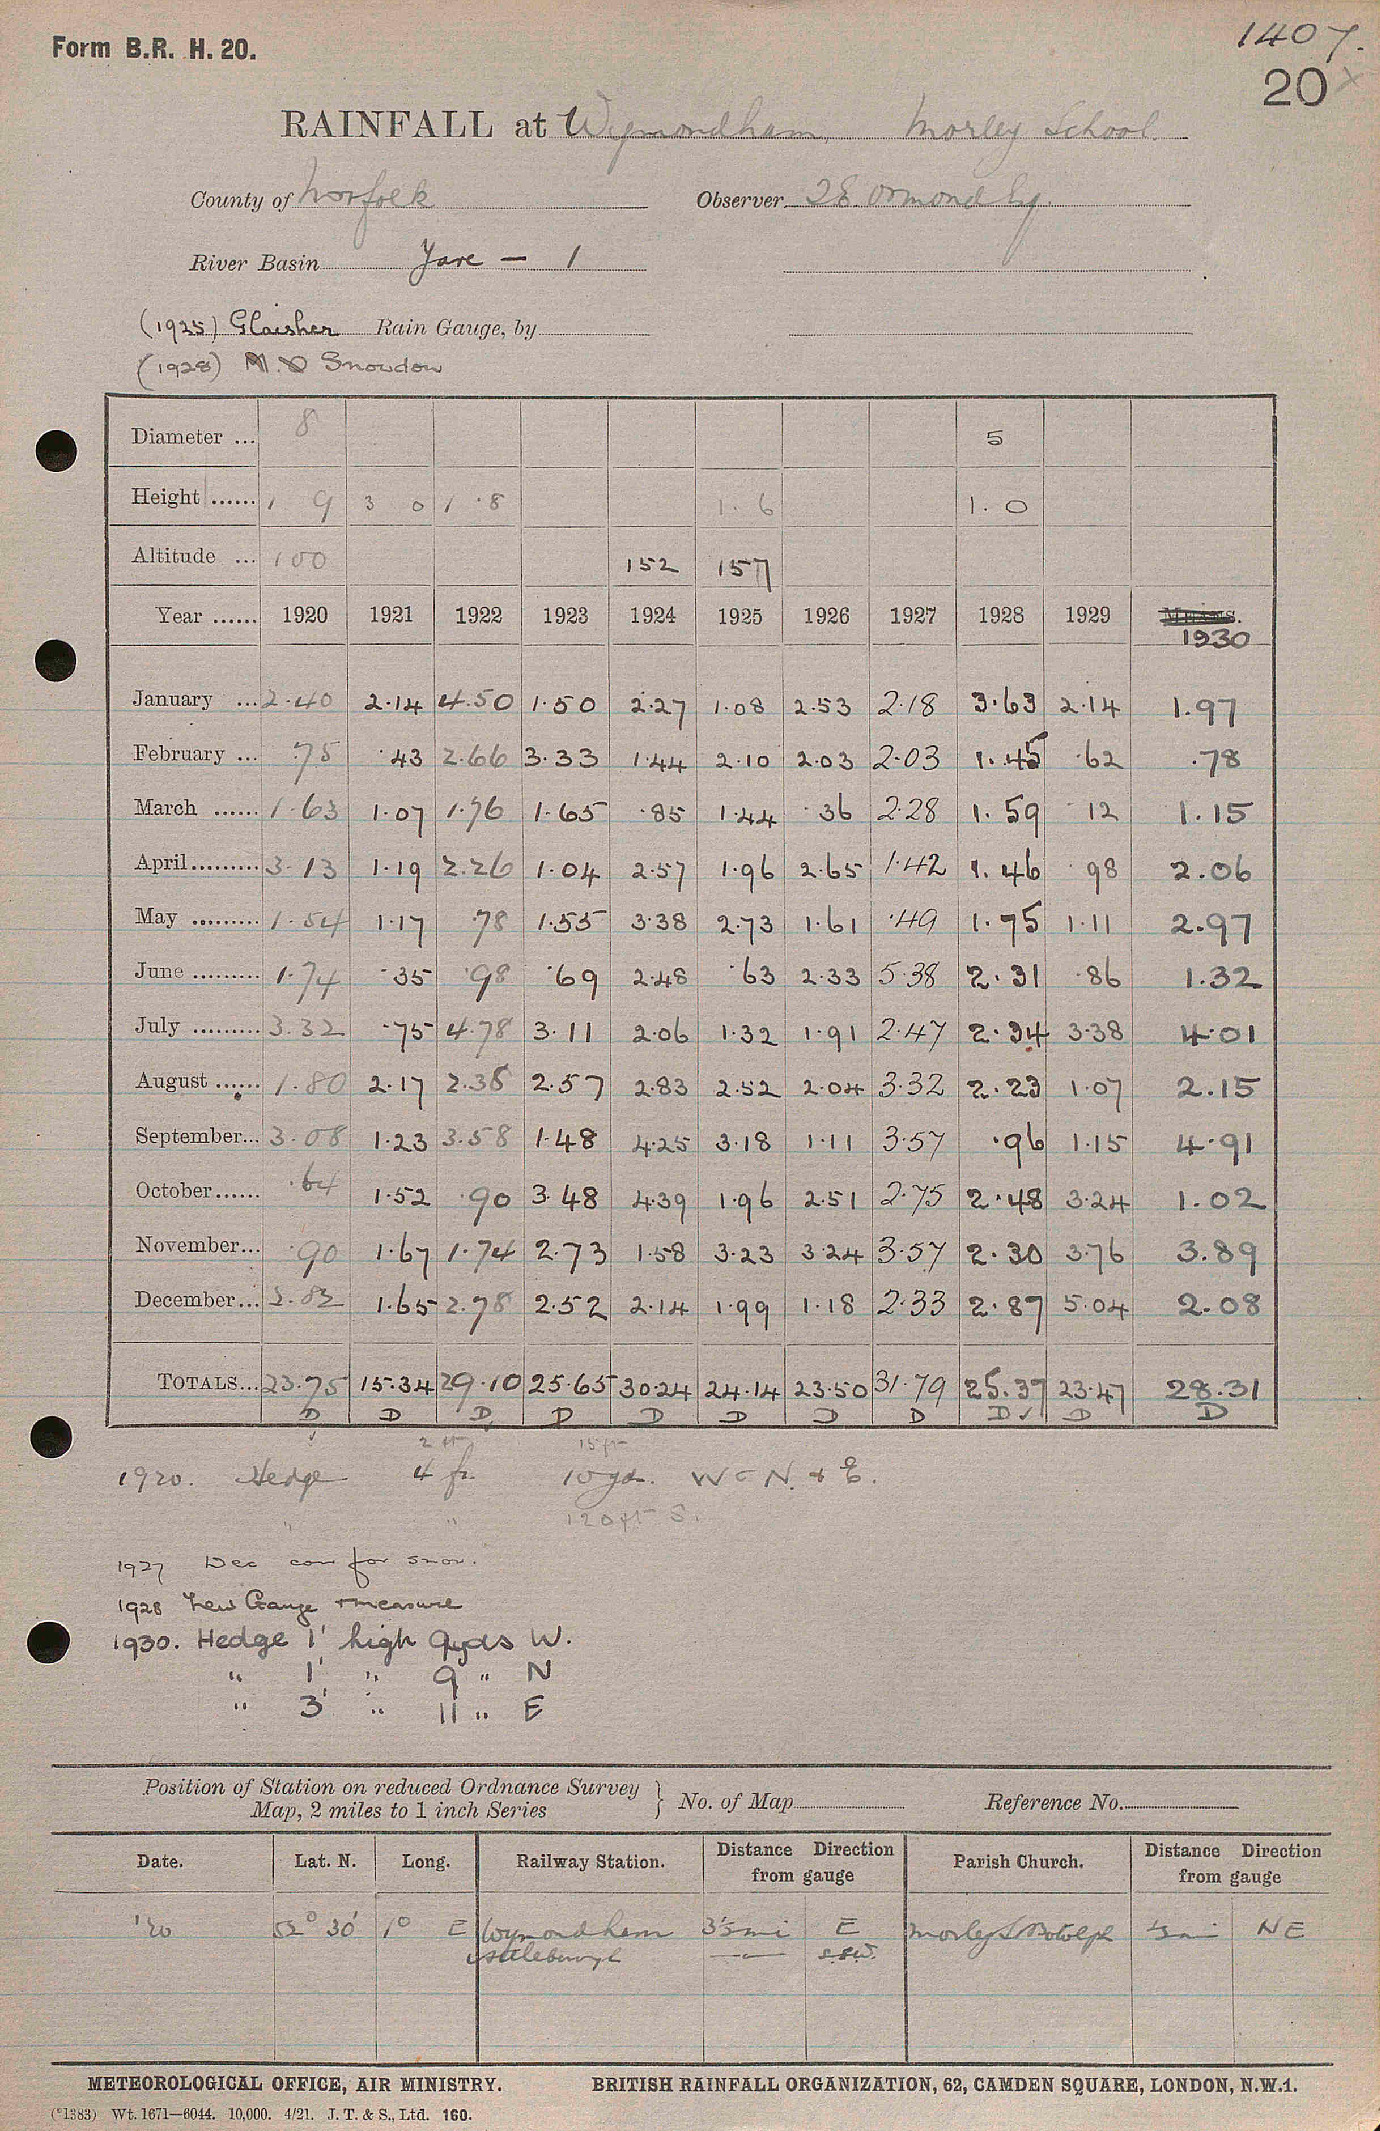 Form B.R. H. 20.
1407.
20
RAINFALL at Wymondham, Morley School.
County of Norfolk Observer Ormond Esq.
River Basin Yare — 1
(1925) Glaisher Rain Gauge, by
(1928) M.O Snowdon
Diameter ... 8 5
Height ...... 1 9 3 0 1 .8 1.6 1.0
Altitude ... 100 152 157
Year ...... 1920 1921 1922 1923 1924 1925 1926 1927 1928 1929 MEANS.
1930
January ... 2.40 2.14 4.50 1.50 2.27 1.08 2.53 2.18 3.63 2.14 1.97
February ... .75 .43 2.66 3.33 1.44 2.10 2.03 2.03 1.45 .62 .78
March ...... 1.63 1.07 1.76 1.65 .85 1.44 .36 2.28 1.59 .12 1.15
April ......... 3.13 1.19 2.26 1.04 2.57 1.96 2.65 1.42 1.46 .98 2.06
May ......... 1.54 1.17 .78 1.55 3.38 2.73 1.61 .49 1.75 1.11 2.97
June ......... 1.74 .35 .98 .69 2.48 .63 2.33 5.38 2.31 .86 1.32
July ......... 3.32 .75 4.78 3.11 2.06 1.32 1.91 2.47 2.34 3.38 4.01
August ...... 1.80 2.17 2.38 2.57 2.83 2.52 2.04 3.32 2.23 1.07 2.15
September... 3.08 1.23 3.58 1.48 4.25 3.18 1.11 3.57 .96 1.15 4.91
October...... .64 1.52 .90 3.48 4.39 1.96 2.51 2.75 2.48 3.24 1.02
November... .90 1.67 1.74 2.73 1.58 3.23 3.24 3.57 2.30 3.76 3.89
December... 1.65 2.78 2.52 2.14 1.99 1.18 2.33 2.87 5.04 2.08
TOTALS... 23.75 15.34 29.10 25.65 30.24 24.14 23.50 31.79 25.37 23.47 28.31
D D D D D D D D D ✓ D D
2 ft 15 ft
1920. Hedge 4 ft. 10 yds. W N. + E.
" " 120 ft S.
1927 Dec corr for snow.
1928 New Gauge + measure
1930. Hedge 1' high 9yds W.
" 1' " 9 " N
" 3' " 11 " E
Position of Station on reduced Ordnance Survey
Map, 2 miles to 1 inch Series } No. of Map Reference No.
Date. Lat. N. Long. Railway Station. Distance Direction from gauge Parish Church. Distance Direction from gauge
'20 52° 30' 1° E Wymondham E Morley St Botolph NE
Attleborough SSW.
METEOROLOGICAL OFFICE, AIR MINISTRY. BRITISH RAINFALL ORGANIZATION, 62, CAMDEN SQUARE, LONDON, N.W.1.
(*1383) Wt. 1671—6044. 10,000. 4/21. J. T. & S., Ltd. 160.